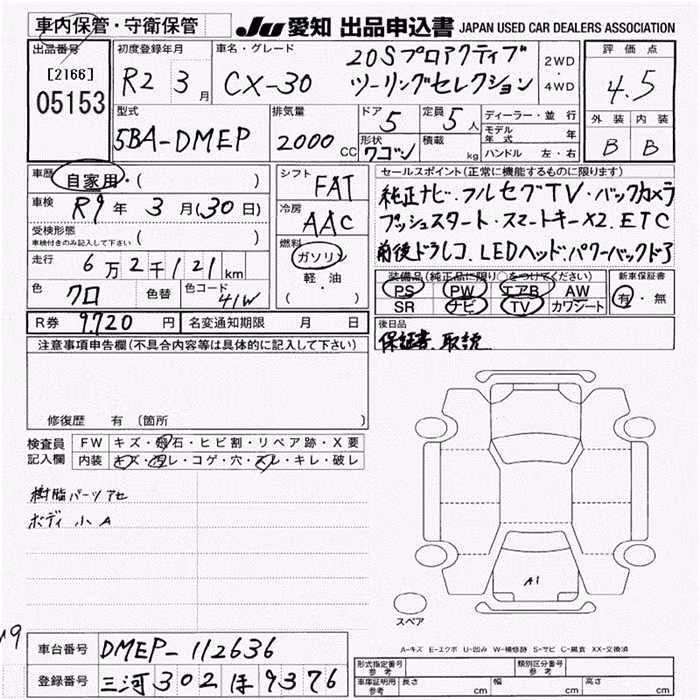 車内保管・守衛保管
JU 愛知 出品申込書 JAPAN USED CAR DEALERS ASSOCIATION
出品番号 初度登録年月 車名・グレード 20Sプロアクティブ 2WD 評価点
[2166] 05153 R2 3月 CX-30 ツーリングセレクション ・4WD 4.5
型式 排気量 ドア 5 定員 5人 ディーラー・並行 外装 内装
5BA-DMEP 2000CC 形状 ワゴン 積載 kg モデル年式 年 B B
ハンドル 左・右
車歴 自家用・( ) シフト FAT セールスポイント(正常に機能するものに限ります)
車検 R9年3月(30日) 冷房 AAC 純正ナビ・フルセグTV・バックカメラ
受検形態 車検付きのみ記入して下さい ( ) プッシュスタート・スマートキー×2.ETC
走行 6万2千121km 燃料 ガソリン・軽・油 ( ) 前後ドラレコ.LEDヘッド・パワーバックドア
色 クロ 色替 色コード 41W 装備品(純正品に限り○をつけてください) 新車保証書
PS PW エアB AW 有・無
SR ナビ TV カワシート
R券 9,720円 名変通知期限 月 日 後日品
保証書.取説
注意事項申告欄(不具合内容等は具体的に記入して下さい)
修復歴 有 (箇所 )
検査員記入欄 FW キズ・飛石・ヒビ割・リペア跡・X要
内装 キズ・汚レ・コゲ・穴・スレ・キレ・破レ
樹脂パーツアセ
ボディ小A
A1
スペア
A-キズ E-エクボ U-凹み W-補修跡 S-サビ C-腐食 XX-交換済
車台番号 DMEP-112636
登録番号 三河302ほ9376
形式指定番号 参考 類別区分番号 参考
車庫証明用 参考 長さ cm 幅 cm 高さ cm